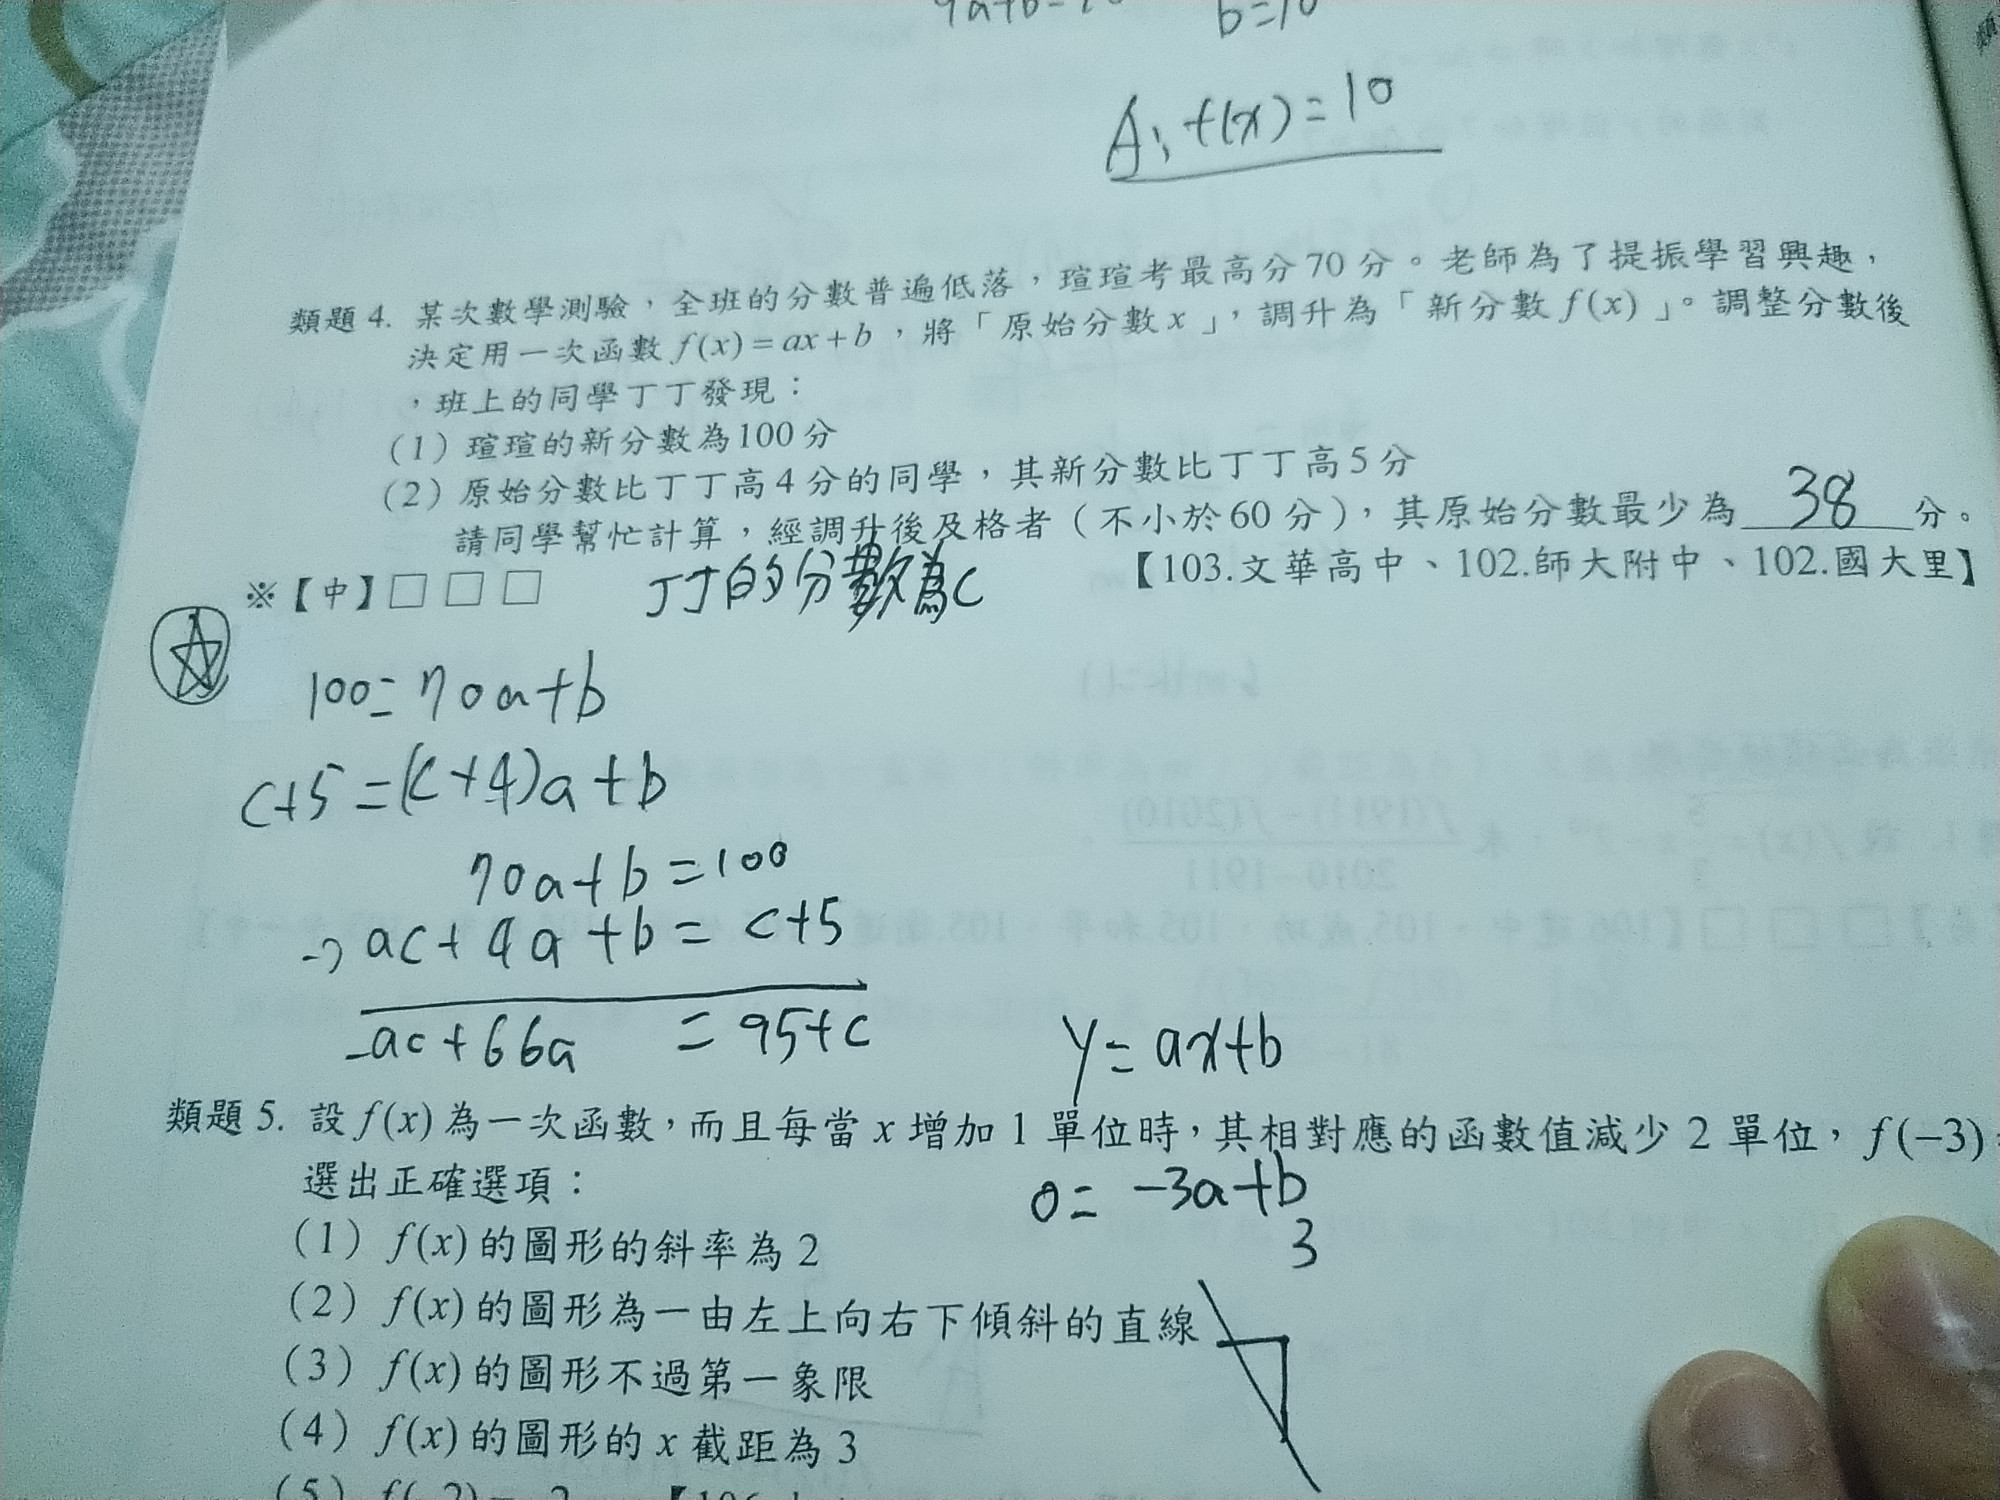 b=10
A: f(x)=10
類題 4. 某次數學測驗，全班的分數普遍低落，瑄瑄考最高分70分。老師為了提振學習興趣，
決定用一次函數 f(x)=ax+b，將「原始分數x」，調升為「新分數f(x)」。調整分數後
，班上的同學丁丁發現：
(1) 瑄瑄的新分數為100分
(2) 原始分數比丁丁高4分的同學，其新分數比丁丁高5分
請同學幫忙計算，經調升後及格者（不小於60分），其原始分數最少為 38 分。
※【中】□ □ □
【103.文華高中、102.師大附中、102.國大里】
丁丁的分數為c
100=70a+b
c+5=(c+4)a+b
70a+b=100
→ac+4a+b=c+5
-ac+66a =95+c
y=ax+b
類題 5. 設 f(x) 為一次函數，而且每當 x 增加 1 單位時，其相對應的函數值減少 2 單位，f(-3)
選出正確選項：
0=-3a+b
3
(1) f(x) 的圖形的斜率為 2
(2) f(x) 的圖形為一由左上向右下傾斜的直線
(3) f(x) 的圖形不過第一象限
(4) f(x) 的圖形的 x 截距為 3